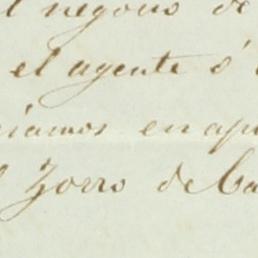 l negocio de
el agente ó
ciamos en ap
l Zorro de Ca